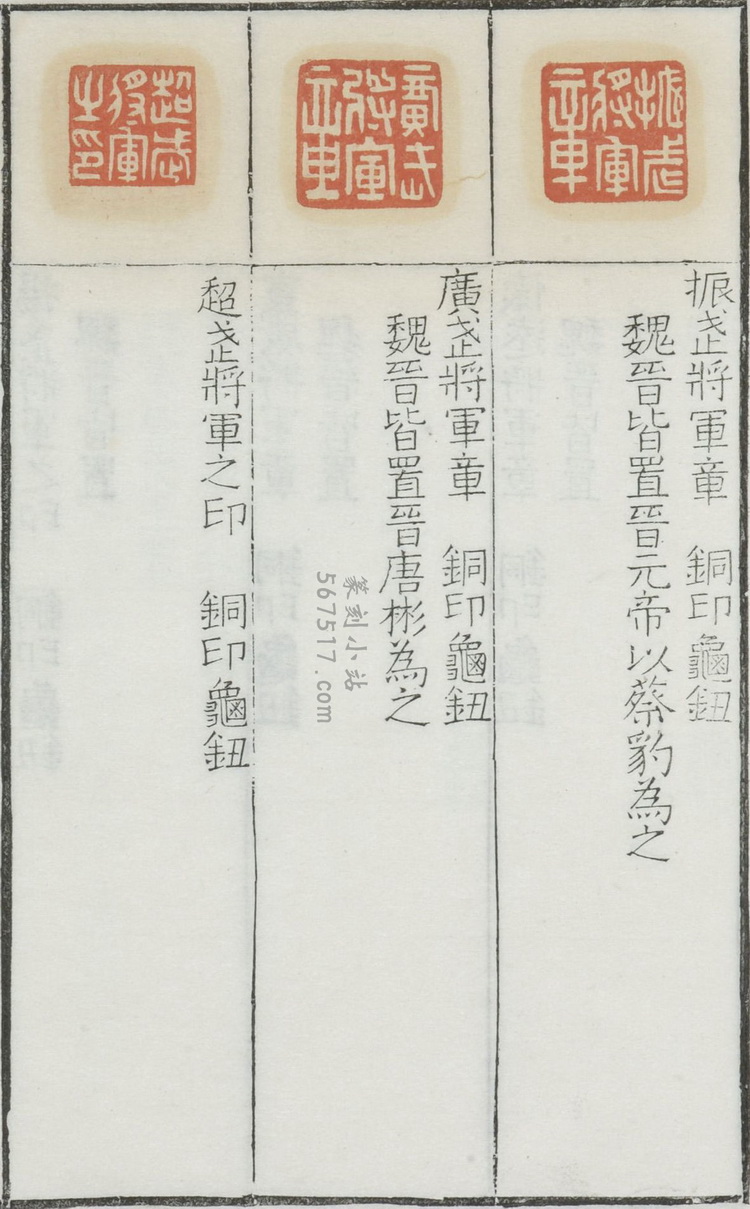 振武將軍章
廣武將軍章
超武將軍之印
振武將軍章　銅印龜鈕
魏晉皆置晉元帝以蔡豹為之
廣武將軍章　銅印龜鈕
魏晉皆置晉唐彬為之
超武將軍之印　銅印龜鈕
篆刻小站
567517.com